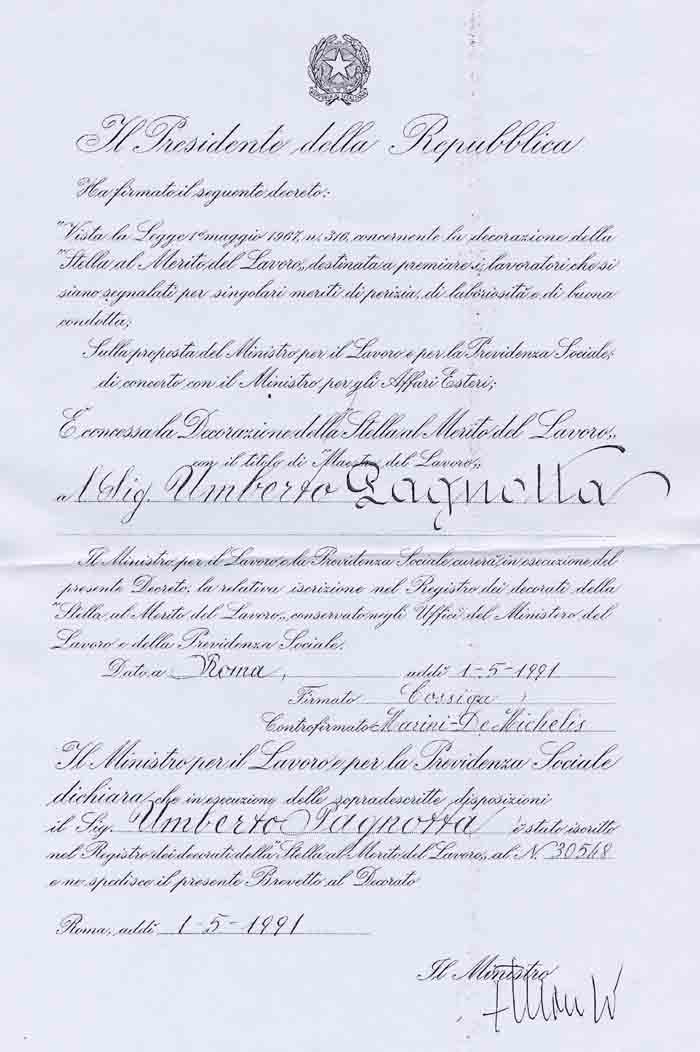 Il Presidente della Repubblica
Ha firmato il seguente decreto:
"Vista la Legge 1º maggio 1967, n. 316, concernente la decorazione della
"Stella al Merito del Lavoro„ destinata a premiare i lavoratori che si
siano segnalati per singolari meriti di perizia, di laboriosità e di buona
condotta;
Sulla proposta del Ministro per il Lavoro e per la Previdenza Sociale;
di concerto con il Ministro per gli Affari Esteri;
È concessa la Decorazione della "Stella al Merito del Lavoro„
con il titolo di "Maestro del Lavoro„
al Sig. Umberto Pagnotta
Il Ministro per il Lavoro e la Previdenza Sociale curerà, in esecuzione del
presente Decreto, la relativa iscrizione nel Registro dei decorati della
"Stella al Merito del Lavoro„ conservato negli Uffici del Ministero del
Lavoro e della Previdenza Sociale.
Dato a Roma, addì 1-5-1991
Firmato Cossiga
Controfirmato: Marini-De Michelis
Il Ministro per il Lavoro e per la Previdenza Sociale
dichiara che in esecuzione delle sopradescritte disposizioni
il Sig. Umberto Pagnotta è stato iscritto
nel Registro dei decorati della "Stella al Merito del Lavoro„ al N. 30548
e ne spedisce il presente Brevetto al Decorato
Roma, addì 1-5-1991
Il Ministro